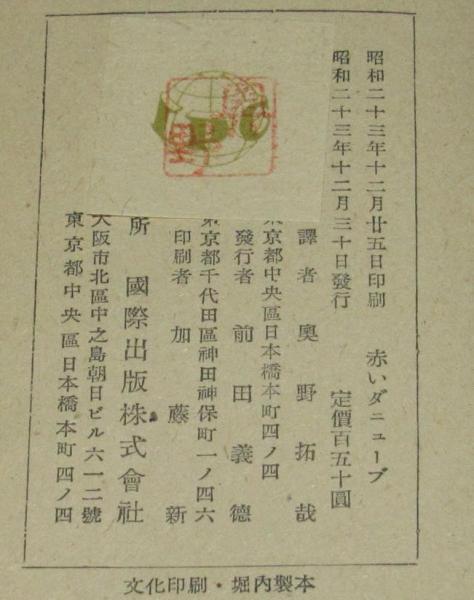 昭和二十三年十二月廿五日印刷 赤いダニューブ
昭和二十三年十二月三十日發行 定價百五十圓
譯者 奧野拓哉
東京都中央區日本橋本町四ノ四
發行者 前田義德
東京都千代田區神田神保町一ノ四六
印刷者 加藤新
所 國際出版株式會社
大阪市北區中之島朝日ビル六一二號
東京都中央區日本橋本町四ノ四
文化印刷・堀内製本